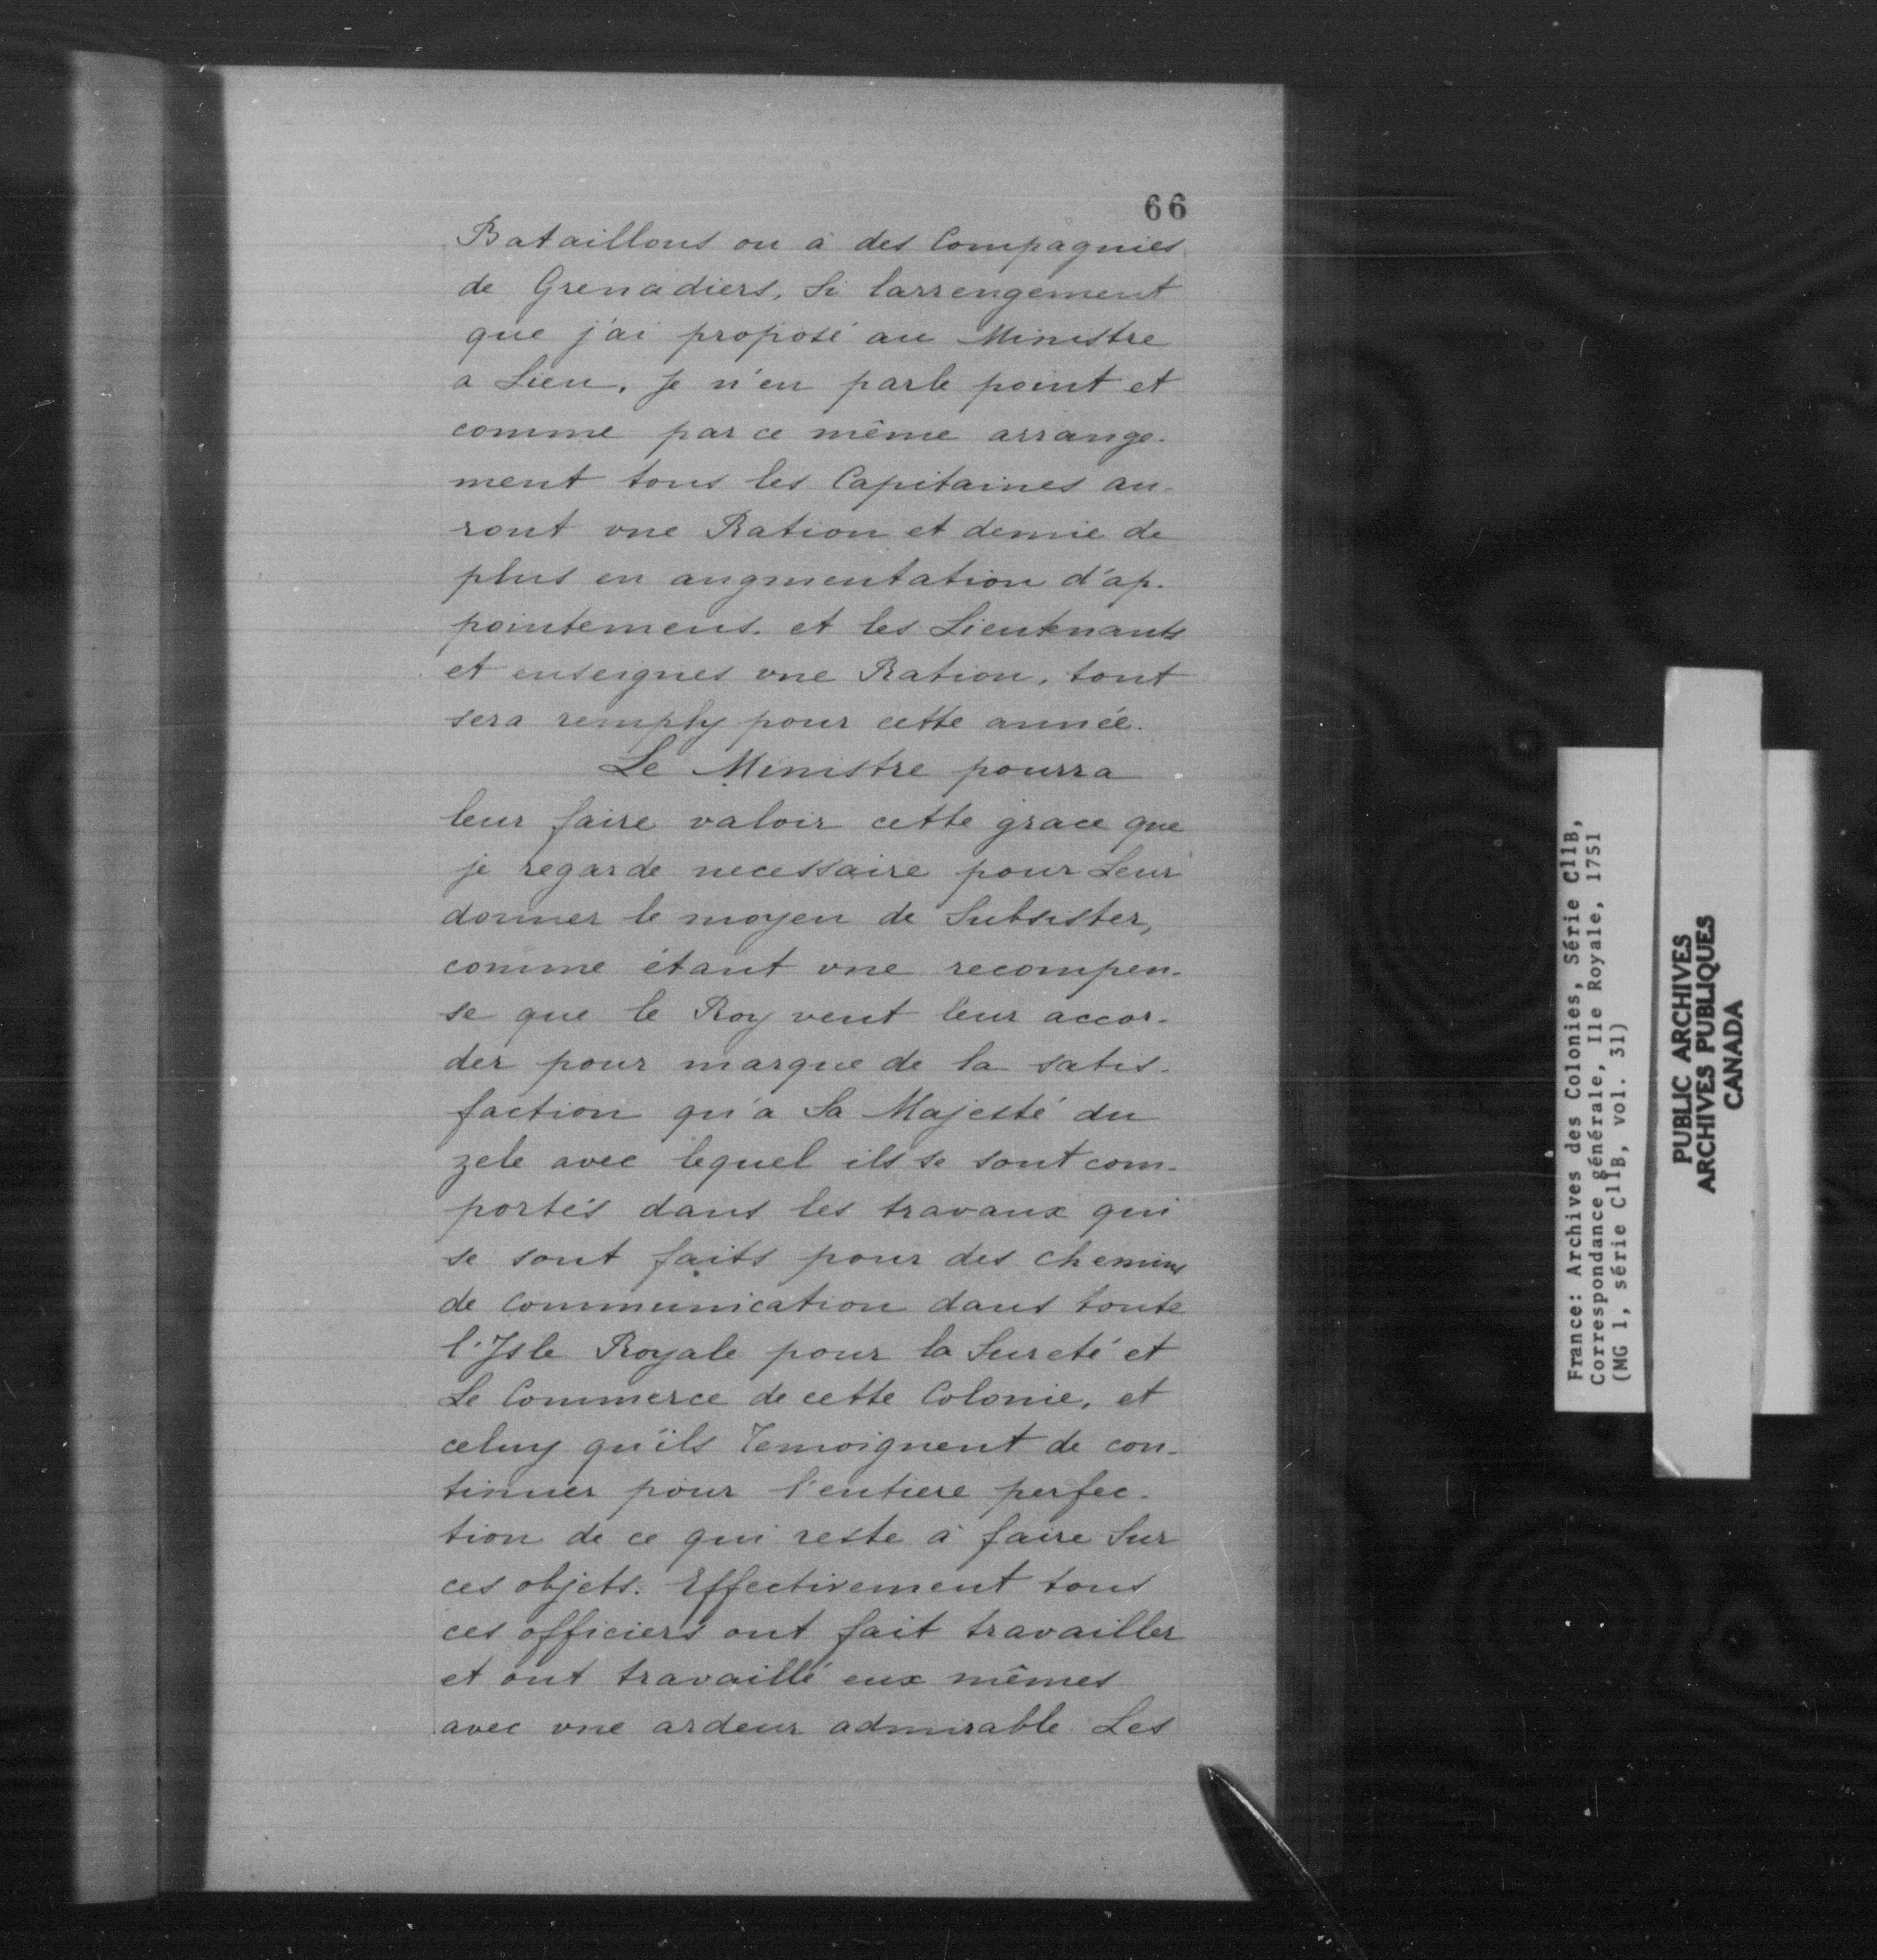 66
Bataillons ou à des Compagnies
de Grenadiers, Si larrengement
que j'ai proposé au Ministre
a Lieu, Je n'en parle point et
comme par ce même arrange-
ment tous les Capitaines au-
ront une Ration et demie de
plus en augmentation d'ap-
pointemens. et les Lieutenants
et enseignes une Ration, tout
sera remply pour cette année.
Le Ministre pourra
leur faire valoir cette grace que
je regarde necessaire pour Leur
donner le moyen de Subsister,
comme étant une recompen-
se que le Roy veut leur accor-
der pour marque de la satis-
faction qu'a Sa Majesté du
zele avec lequel ils se sont com-
portés dans les travaux qui
se sont faits pour des chemins
de Communication dans toute
l'Isle Royale pour la Sureté et
Le Commerce de cette Colonie, et
celuy qu'ils Temoignent de con-
tinuer pour l'entiere perfec-
tion de ce qui reste à faire Sur
ces objets. Effectivement tous
ces officiers ont fait travailler
et ont travaillé eux mêmes
avec une ardeur admirable Les
France: Archives des Colonies, Série C11B,
Correspondance générale, Ile Royale, 1751
(MG 1, série C11B, vol. 31)
PUBLIC ARCHIVES
ARCHIVES PUBLIQUES
CANADA